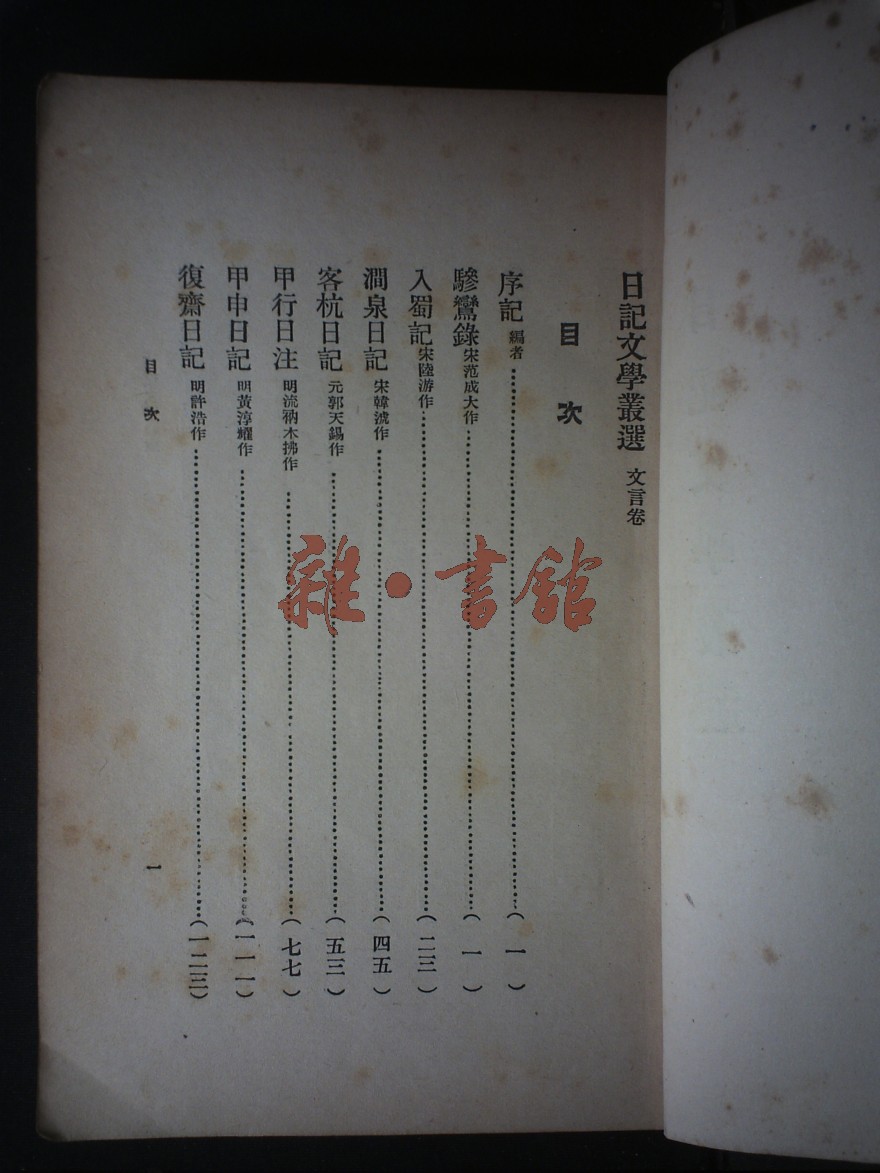 日記文學叢選 文言卷
目次
序記 編者……(一)
驂鸞錄 宋范成大作……(一)
入蜀記 宋陸游作……(二三)
澗泉日記 宋韓淲作……(四五)
客杭日記 元郭天錫作……(五三)
甲行日注 明流衲木拂作……(七七)
甲申日記 明黃淳耀作……(一一一)
復齋日記 明許浩作……(一二三)
目次
一
雜·書館